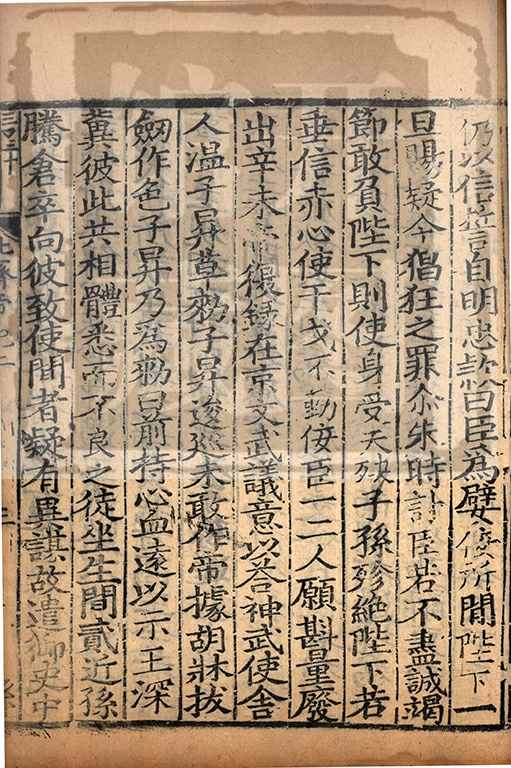 仍以信誓自明忠款曰臣為嬖佞所間陛下一
旦賜疑今猖狂之罪尒朱時討臣若不盡誠竭
節敢負陛下則使身受天殃子孫殄絶陛下若
垂信赤心使干戈不動佞臣一二人願斟量廢
出辛未帝復録在京文武議意以荅神武使舎
人温子昇草勑子昇逡巡未敢作帝據胡牀拔
劒作色子昇乃為勑曰前持心血遠以示王深
冀彼此共相體悉而不良之徒坐生間貳近孫
騰倉卒向彼致使聞者疑有異謀故遣御史中